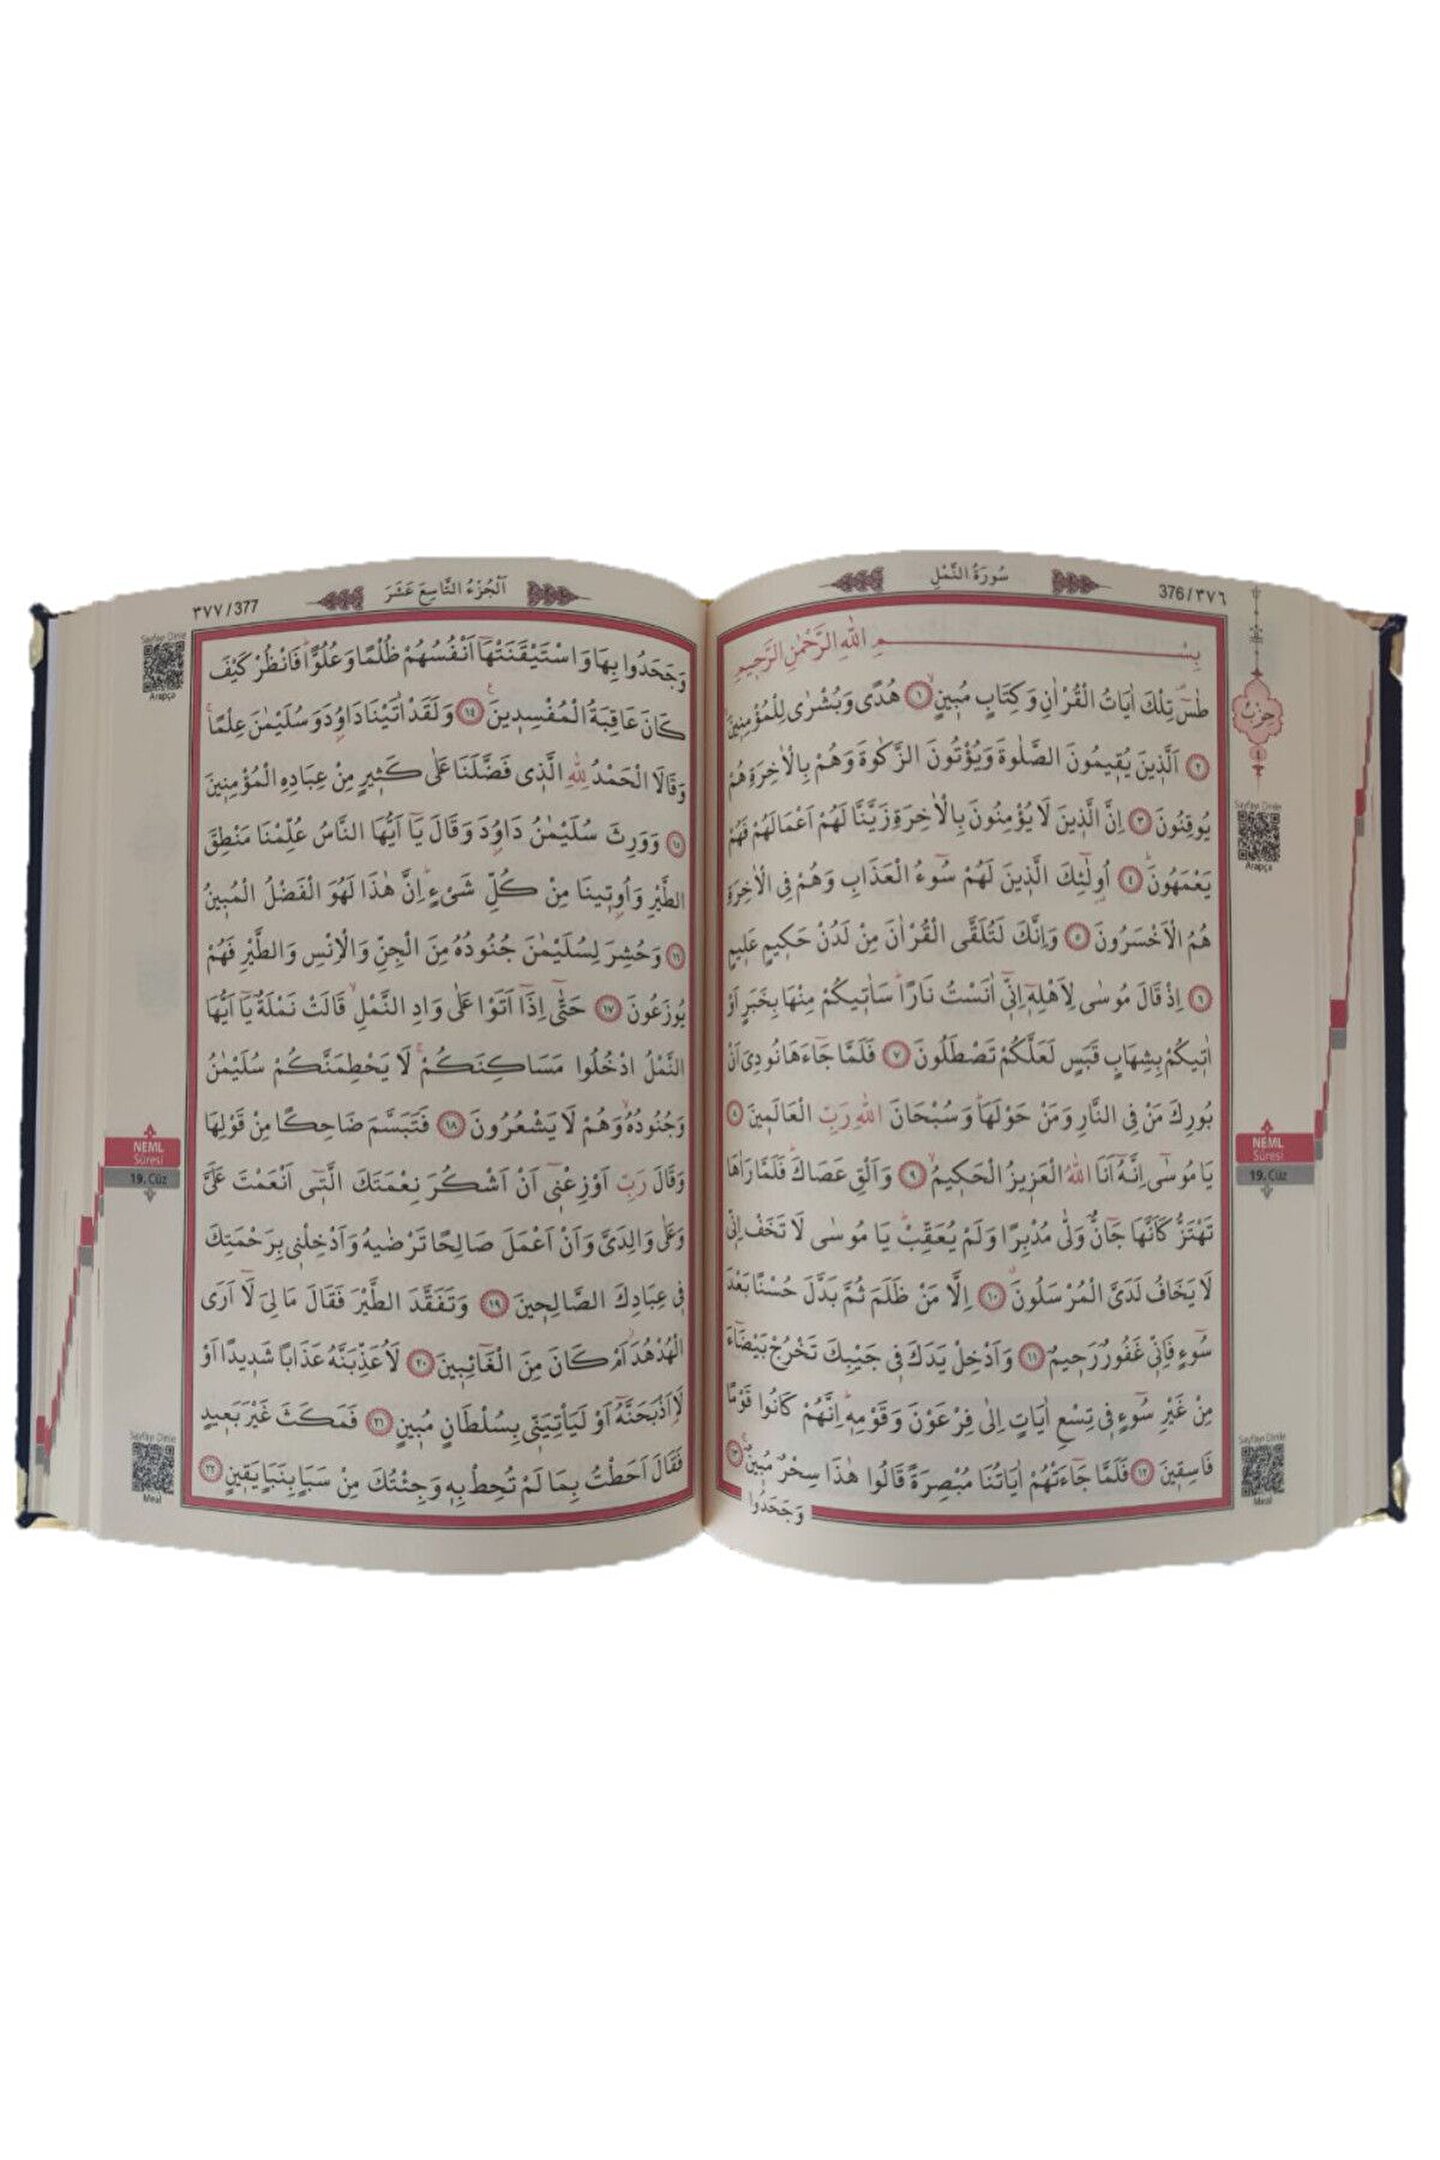 سُورَةُ النَّمْلِ
376/٣٧٦
بِسْمِ اللهِ الرَّحْمٰنِ الرَّحِيمِ
طٰسٓ تِلْكَ اٰيَاتُ الْقُرْاٰنِ وَكِتَابٍ مُبِينٍۙ ﴿١﴾ هُدًى وَبُشْرٰى لِلْمُؤْمِنِينَۙ
﴿٢﴾ اَلَّذِينَ يُقِيمُونَ الصَّلٰوةَ وَيُؤْتُونَ الزَّكٰوةَ وَهُمْ بِالْاٰخِرَةِ هُمْ
يُوقِنُونَ ﴿٣﴾ اِنَّ الَّذِينَ لَا يُؤْمِنُونَ بِالْاٰخِرَةِ زَيَّنَّا لَهُمْ اَعْمَالَهُمْ فَهُمْ
يَعْمَهُونَۜ ﴿٤﴾ اُو۬لٰٓئِكَ الَّذِينَ لَهُمْ سُٓوءُ الْعَذَابِ وَهُمْ فِي الْاٰخِرَةِ
هُمُ الْاَخْسَرُونَ ﴿٥﴾ وَاِنَّكَ لَتُلَقَّى الْقُرْاٰنَ مِنْ لَدُنْ حَكِيمٍ عَلِيمٍ
﴿٦﴾ اِذْ قَالَ مُوسٰى لِاَهْلِهٓ اِنّٓي اٰنَسْتُ نَارًاۜ سَاٰتِيكُمْ مِنْهَا بِخَبَرٍ اَوْ
اٰتِيكُمْ بِشِهَابٍ قَبَسٍ لَعَلَّكُمْ تَصْطَلُونَ ﴿٧﴾ فَلَمَّا جَٓاءَهَا نُودِيَ اَنْ
بُورِكَ مَنْ فِي النَّارِ وَمَنْ حَوْلَهَاۜ وَسُبْحَانَ اللهِ رَبِّ الْعَالَمِينَ ﴿٨﴾
يَا مُوسٰٓى اِنَّهُٓ اَنَا اللهُ الْعَزِيزُ الْحَكِيمُۙ ﴿٩﴾ وَاَلْقِ عَصَاكَۜ فَلَمَّا رَاٰهَا
تَهْتَزُّ كَاَنَّهَا جَٓانٌّ وَلّٰى مُدْبِرًا وَلَمْ يُعَقِّبْۜ يَا مُوسٰى لَا تَخَفْ اِنّٖي
لَا يَخَافُ لَدَيَّ الْمُرْسَلُونَۗ ﴿١٠﴾ اِلَّا مَنْ ظَلَمَ ثُمَّ بَدَّلَ حُسْنًا بَعْدَ
سُٓوءٍ فَاِنّٖي غَفُورٌ رَحِيمٌ ﴿١١﴾ وَاَدْخِلْ يَدَكَ فِي جَيْبِكَ تَخْرُجْ بَيْضَٓاءَ
مِنْ غَيْرِ سُٓوءٍ فِي تِسْعِ اٰيَاتٍ اِلٰى فِرْعَوْنَ وَقَوْمِهٖۜ اِنَّهُمْ كَانُوا قَوْمًا
فَاسِقِينَ ﴿١٢﴾ فَلَمَّا جَٓاءَتْهُمْ اٰيَاتُنَا مُبْصِرَةً قَالُوا هٰذَا سِحْرٌ مُبِينٌۚ ﴿١٣﴾
وَجَحَدُوا
حِزْبُ
٤
Sayfayı Dinle
Arapça
NEML
Sûresi
19. Cüz
Sayfayı Dinle
Meal
اَلْجُزْءُ التَّاسِعَ عَشَرَ
٣٧٧/377
وَجَحَدُوا بِهَا وَاسْتَيْقَنَتْهَٓا اَنْفُسُهُمْ ظُلْمًا وَعُلُوًّاۜ فَانْظُرْ كَيْفَ
كَانَ عَاقِبَةُ الْمُفْسِدِينَ۟ ﴿١٤﴾ وَلَقَدْ اٰتَيْنَا دَاوُ۫دَ وَسُلَيْمٰنَ عِلْمًاۚ
وَقَالَا الْحَمْدُ لِلهِ الَّذِي فَضَّلَنَا عَلٰى كَثِيرٍ مِنْ عِبَادِهِ الْمُؤْمِنِينَ
﴿١٥﴾ وَوَرِثَ سُلَيْمٰنُ دَاوُ۫دَ وَقَالَ يَٓا اَيُّهَا النَّاسُ عُلِّمْنَا مَنْطِقَ
الطَّيْرِ وَاُو۫تِينَا مِنْ كُلِّ شَيْءٍۜ اِنَّ هٰذَا لَهُوَ الْفَضْلُ الْمُبِينُ
﴿١٦﴾ وَحُشِرَ لِسُلَيْمٰنَ جُنُودُهُ مِنَ الْجِنِّ وَالْاِنْسِ وَالطَّيْرِ فَهُمْ
يُوزَعُونَ ﴿١٧﴾ حَتّٰٓى اِذَٓا اَتَوْا عَلٰى وَادِ النَّمْلِۙ قَالَتْ نَمْلَةٌ يَٓا اَيُّهَا
النَّمْلُ ادْخُلُوا مَسَاكِنَكُمْۚ لَا يَحْطِمَنَّكُمْ سُلَيْمٰنُ
وَجُنُودُهُۙ وَهُمْ لَا يَشْعُرُونَ ﴿١٨﴾ فَتَبَسَّمَ ضَاحِكًا مِنْ قَوْلِهَا
وَقَالَ رَبِّ اَوْزِعْنٓي اَنْ اَشْكُرَ نِعْمَتَكَ الَّتٓي اَنْعَمْتَ عَلَيَّ
وَعَلٰى وَالِدَيَّ وَاَنْ اَعْمَلَ صَالِحًا تَرْضٰيهُ وَاَدْخِلْنِي بِرَحْمَتِكَ
فِي عِبَادِكَ الصَّالِحِينَ ﴿١٩﴾ وَتَفَقَّدَ الطَّيْرَ فَقَالَ مَا لِيَ لَٓا اَرَى
الْهُدْهُدَۘ اَمْ كَانَ مِنَ الْغَٓائِبِينَ ﴿٢٠﴾ لَاُعَذِّبَنَّهُ عَذَابًا شَدِيدًا اَوْ
لَا۬اَذْبَحَنَّهُٓ اَوْ لَيَأْتِيَنّٖي بِسُلْطَانٍ مُبِينٍ ﴿٢١﴾ فَمَكَثَ غَيْرَ بَعِيدٍ
فَقَالَ اَحَطْتُ بِمَا لَمْ تُحِطْ بِهٖ وَجِئْتُكَ مِنْ سَبَأٍ بِنَبَأٍ يَقِينٍ ﴿٢٢﴾
Sayfayı Dinle
Arapça
NEML
Sûresi
19. Cüz
Sayfayı Dinle
Meal